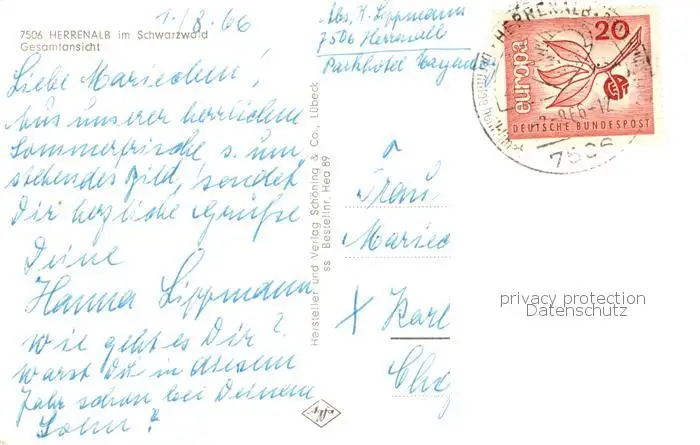 1./8.66
7506 HERRENALB im Schwarzwald
Gesamtansicht
Liebe Mariechen!
Aus unserer herrlichen
Sommerfrische s. um-
stehendes Bild, sendet
Dir herzliche Grüße
Deine
Hanna Lippmann
Wie geht es Dir?
Warst Du in diesem
Jahr schon bei Deinem
Sohn?
Hersteller und Verlag Schöning & Co., Lübeck
ss Bestellnr. Hea 89
Abs. H. Lippmann
7506 Herrenalb
Parkhotel
HERRENALB
20
europa
CEPT
DEUTSCHE BUNDESPOST
7506
Frau
Mariec
x Karl
privacy protection
Datenschutz